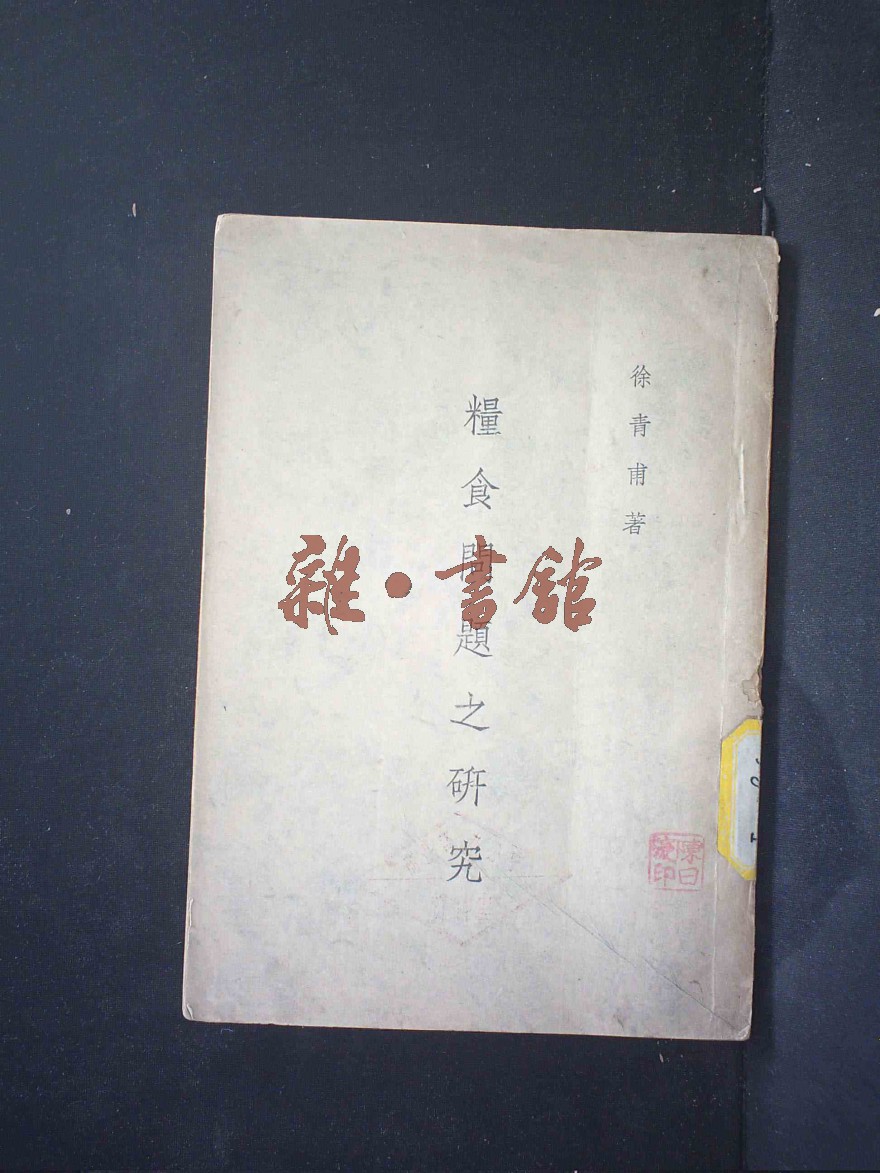 徐青甫著
糧食問題之研究
雜·書館